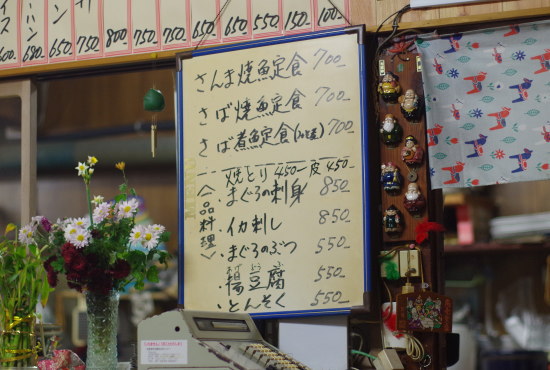 650 750 800 750 650 650 550 150 100
さんま焼魚定食 700-
さば焼魚定食 700-
さば煮魚定食(みそ) 700-
焼とり 450- 皮 450-
〈一品料理〉
・まぐろの刺身 850-
イカ刺し 850-
・まぐろのぶつ 550-
・揚豆腐 550-
・とんそく 550-